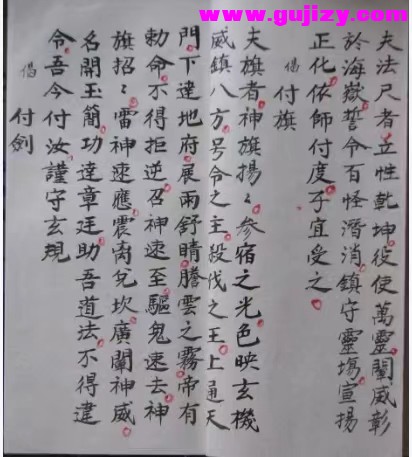 www.gujizy.com
夫法尺者立性乾坤役使萬靈闡威彰
於海嶽誓令百怪潛消鎮守靈塲宣揚
正化依師付度子宜受之
偈 付旗
夫旗者神旗揚々參宿之光色映玄機
威鎮八方号令之主殺伐之王上通天
門下達地府展雨舒晴騰雲之霧帝有
勅命不得拒逆召神速至驅鬼速去神
旗招々雷神速應震离兌坎廣闡神威
名開玉簡功達章廷助吾道法不得違
令吾今付汝謹守玄規
偈 付劍